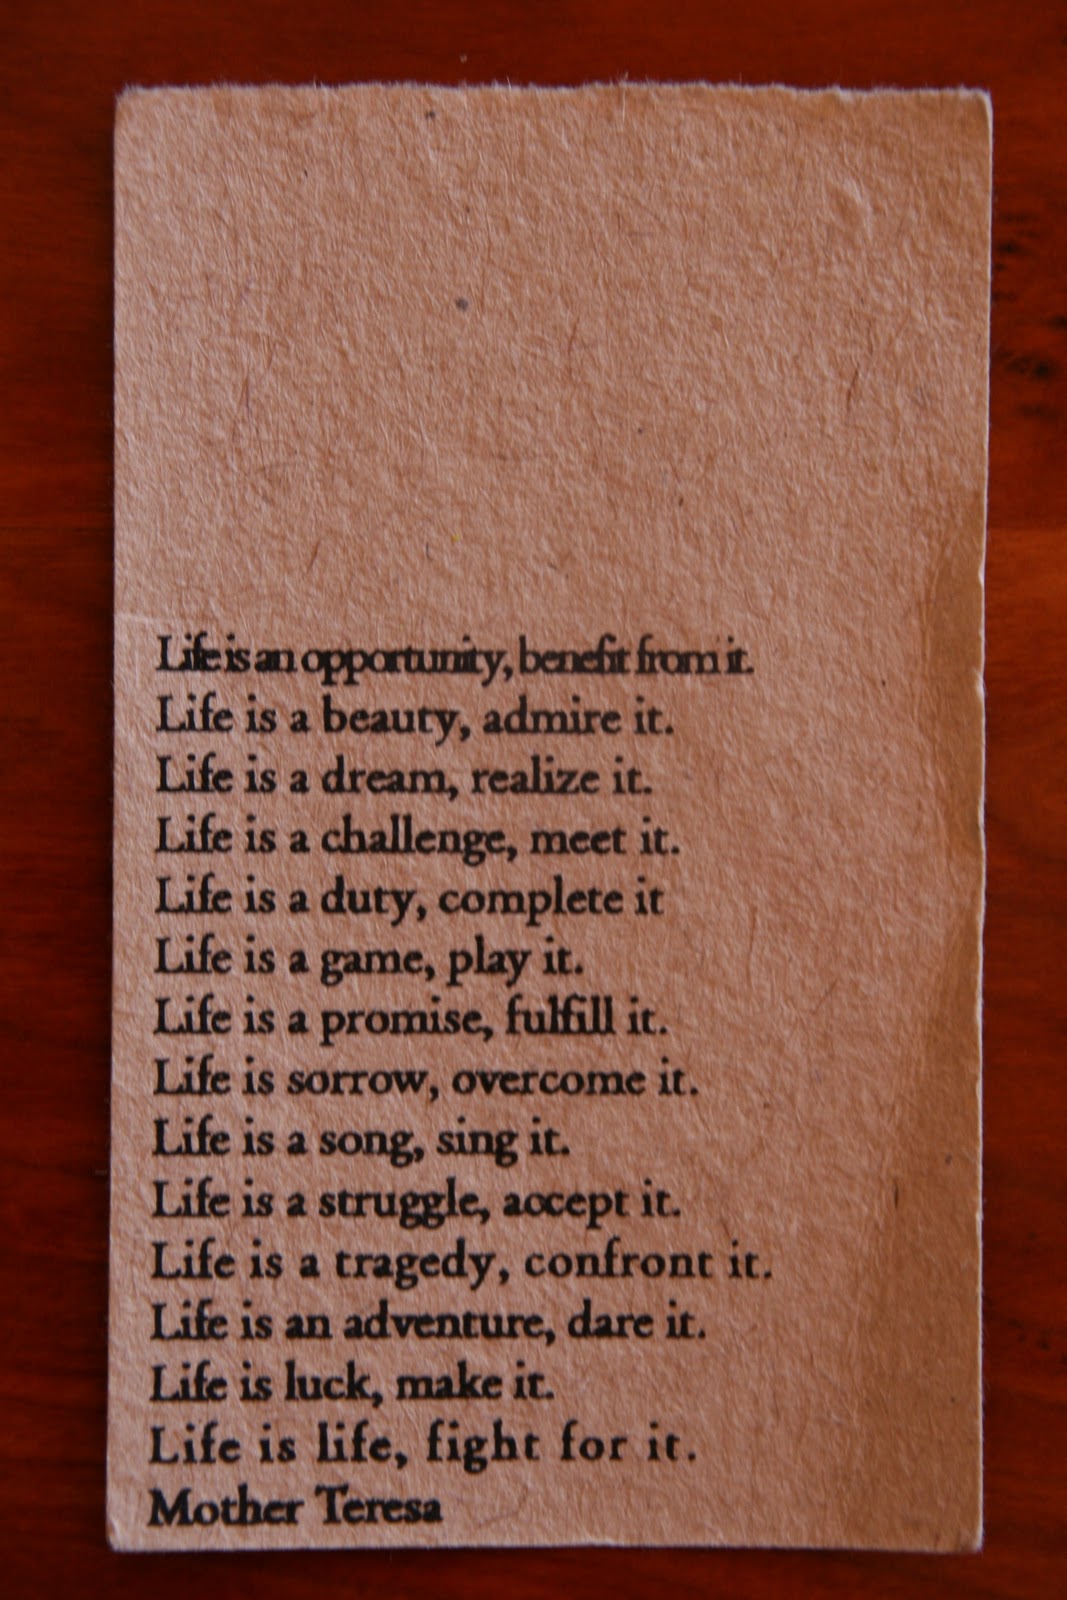 Life is an opportunity, benefit from it.
Life is a beauty, admire it.
Life is a dream, realize it.
Life is a challenge, meet it.
Life is a duty, complete it
Life is a game, play it.
Life is a promise, fulfill it.
Life is sorrow, overcome it.
Life is a song, sing it.
Life is a struggle, accept it.
Life is a tragedy, confront it.
Life is an adventure, dare it.
Life is luck, make it.
Life is life, fight for it.
Mother Teresa